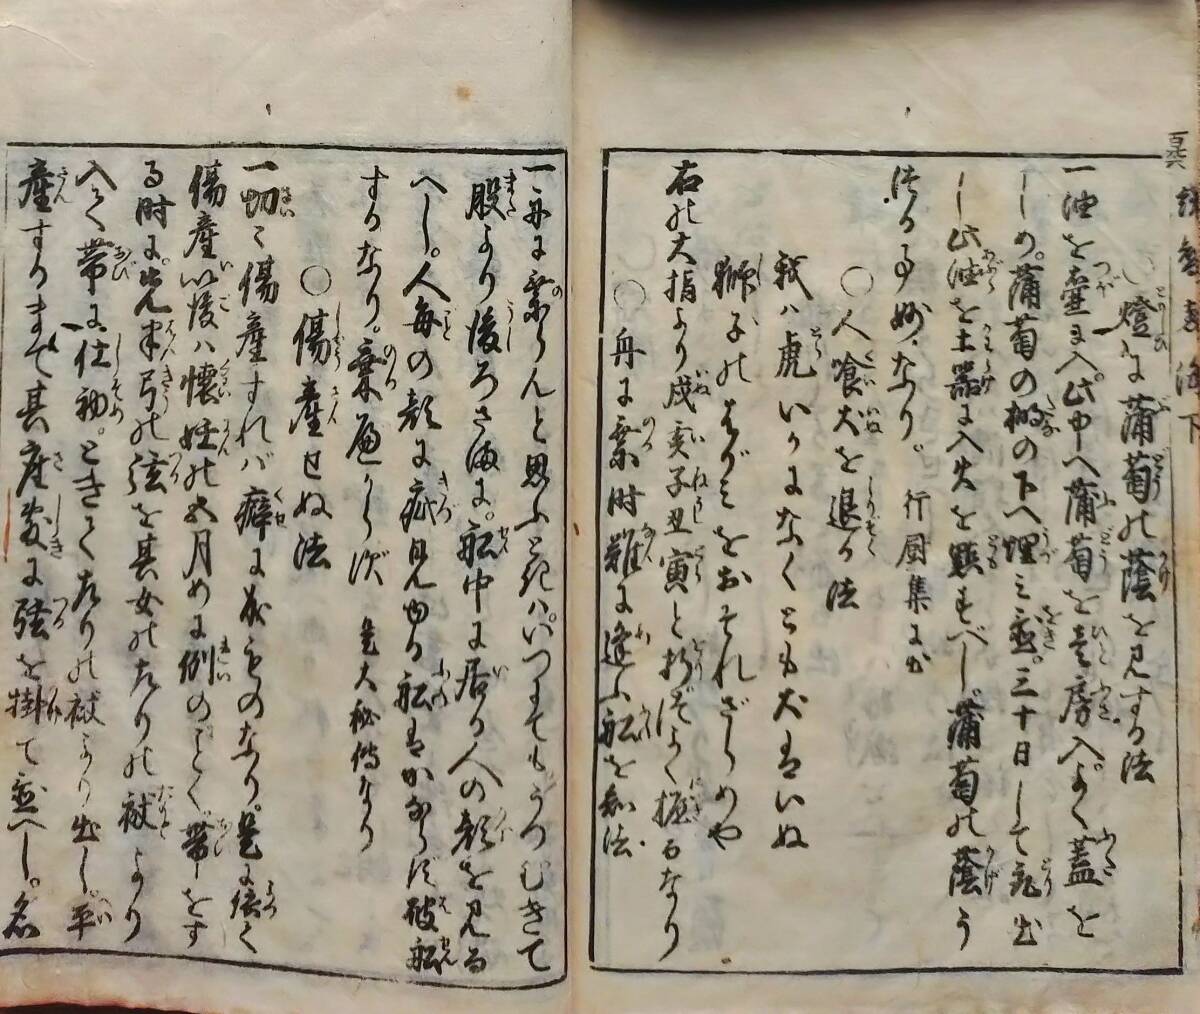 ○燈に蒲萄の蔭を見する法
一油を壺に入。此中へ蒲萄を壱房入。よく蓋を
しめ。蒲萄の棚の下へ埋み置。三十日して取出
し此油を土器に入火を点すべし。蒲萄の蔭う
つる事妙なり。 行厨集に出
○人喰犬を退る法
我ハ虎いかになくとも犬はいぬ
獅子のはがみをおそれざらめや
右の大指より戌亥子丑寅と折てつよく握るなり
○舟に乗時難に逢ふ船を知法
一舟に乗らんと思ふときハ。いつにてもうつむきて
股より後ろさまに。船中に居る人の顔を見る
へし。人毎の顔に疵見ゆる船はかならず破船
するなり。乗べからず 是大秘傳なり
○傷産せぬ法
一切々傷産すれバ癖に成ものなり。是に依て
傷産以後ハ懐妊の五月めに例のごとく。帯をす
る時に。先半弓の弦を其女の左りの袂より
入て帯に仕初。ときて左りの袂より出し。平
産するまて其座敷に弦を掛て置へし。名